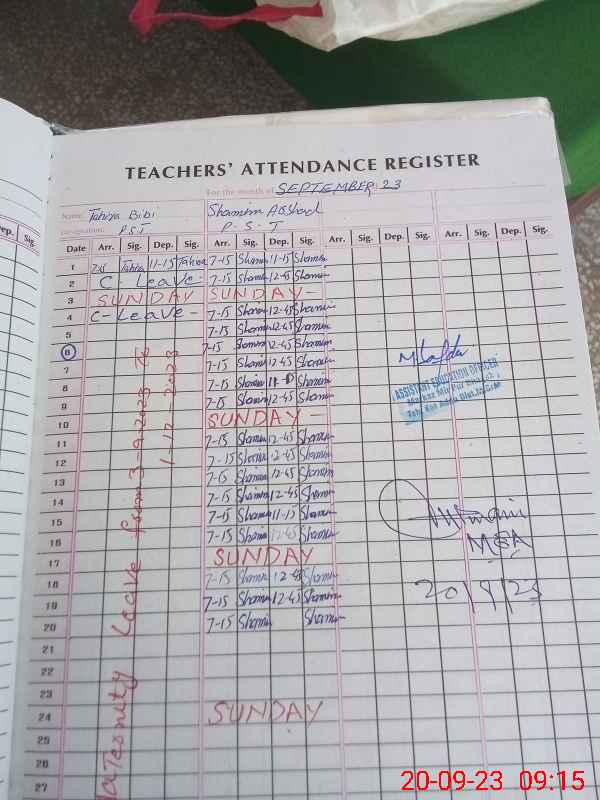 TEACHERS' ATTENDANCE REGISTER
For the month of SEPTEMBER, 23
Name Tahira Bibi Shamim Arshad
P.S.T P.S.T
Date Arr. Sig. Dep. Sig. Arr. Sig. Dep. Sig. Arr. Sig. Dep. Sig. Arr. Sig. Dep. Sig.
1 7-15 Tahira 11-15 Tahira 7-15 Shamim 11-15 Shamim
2 C- Leave - 7-15 Shamim 12-45 Shamim
3 SUNDAY SUNDAY -
4 C- Leave - 7-15 Shamim 12-45 Shamim
5 7-15 Shamim 12-45 Shamim
6 7-15 Shamim 12-45 Shamim
7 7-15 Shamim 12-45 Shamim
8 7-15 Shamim Shamim
9 7-15 Shamim 12-45 Shamim
10 SUNDAY -
11 7-15 Shamim 12-45 Shamim
12 7-15 Shamim 12-45 Shamim
13 7-15 Shamim 12-45 Shamim
14 7-15 Shamim 12-45 Shamim
15 7-15 Shamim 11-15 Shamim
16 7-15 Shamim 12-45 Shamim
17 SUNDAY
18 7-15 Shamim 12-45 Shamim
19 7-15 Shamim 12-45 Shamim
20 7-15 Shamim Shamim
21
22
23
24 SUNDAY
25
26
27
Maternity Leave from 3-9-2023 To
1-12-2023
ASSISTANT EDUCATION OFFICER
MEA
20/9/23
Dep. Sig.
20-09-23 09:15